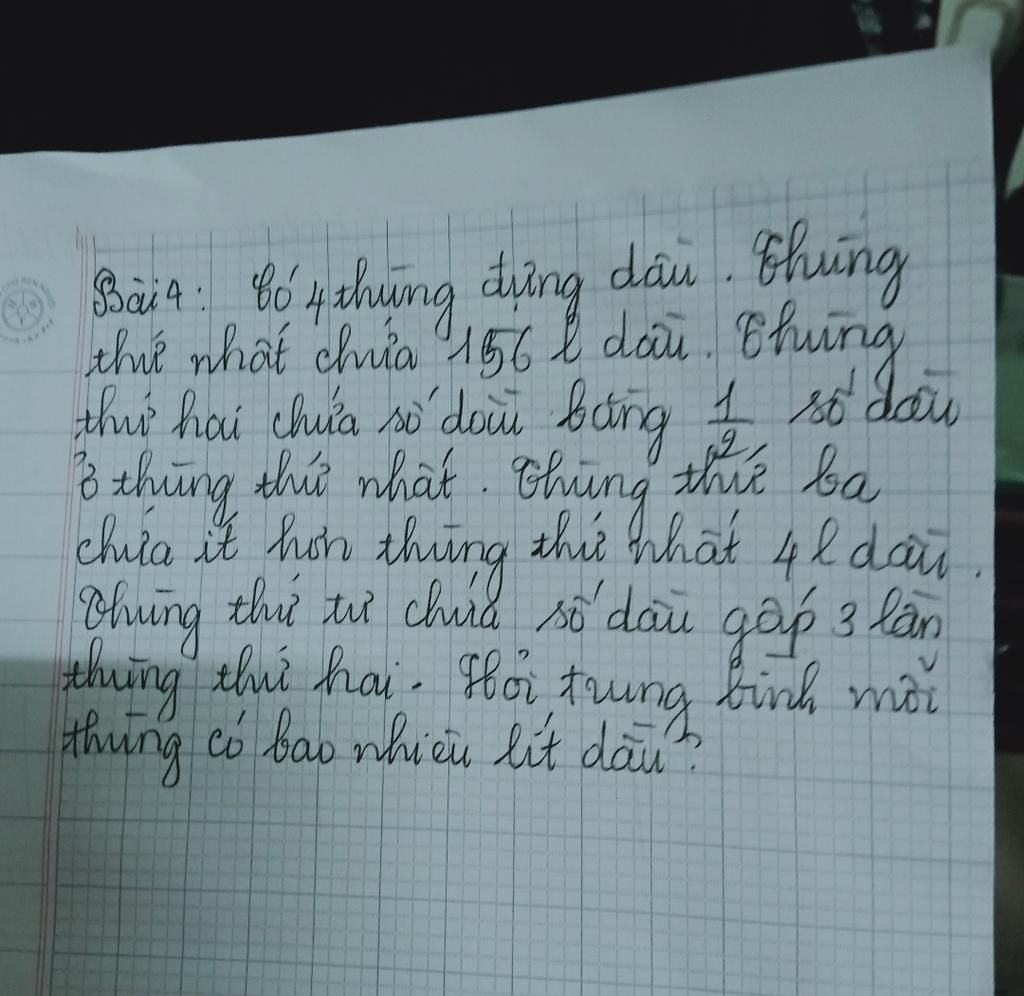 Bài 4: Có 4 thùng đựng dầu. Thùng
thứ nhất chứa 156 l dầu. Thùng
thứ hai chứa số dầu bằng 1/2 số dầu
ở thùng thứ nhất. Thùng thứ ba
chứa ít hơn thùng thứ nhất 4 l dầu.
Thùng thứ tư chứa số dầu gấp 3 lần
thùng thứ hai. Hỏi trung bình mỗi
thùng có bao nhiêu lít dầu?